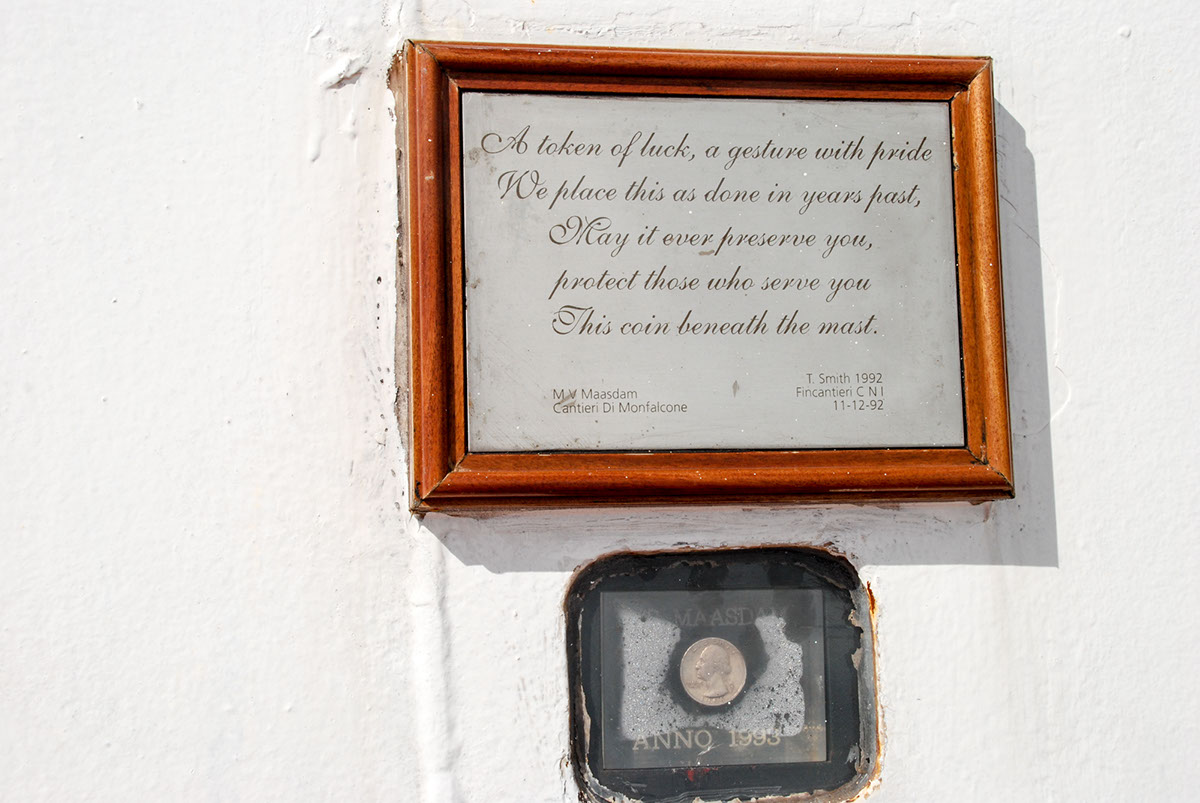 A token of luck, a gesture with pride
We place this as done in years past,
May it ever preserve you,
protect those who serve you
This coin beneath the mast.
M V Maasdam
Cantieri Di Monfalcone
T. Smith 1992
Fincantieri C N I
11-12-92
MAASDAM
ANNO 1993